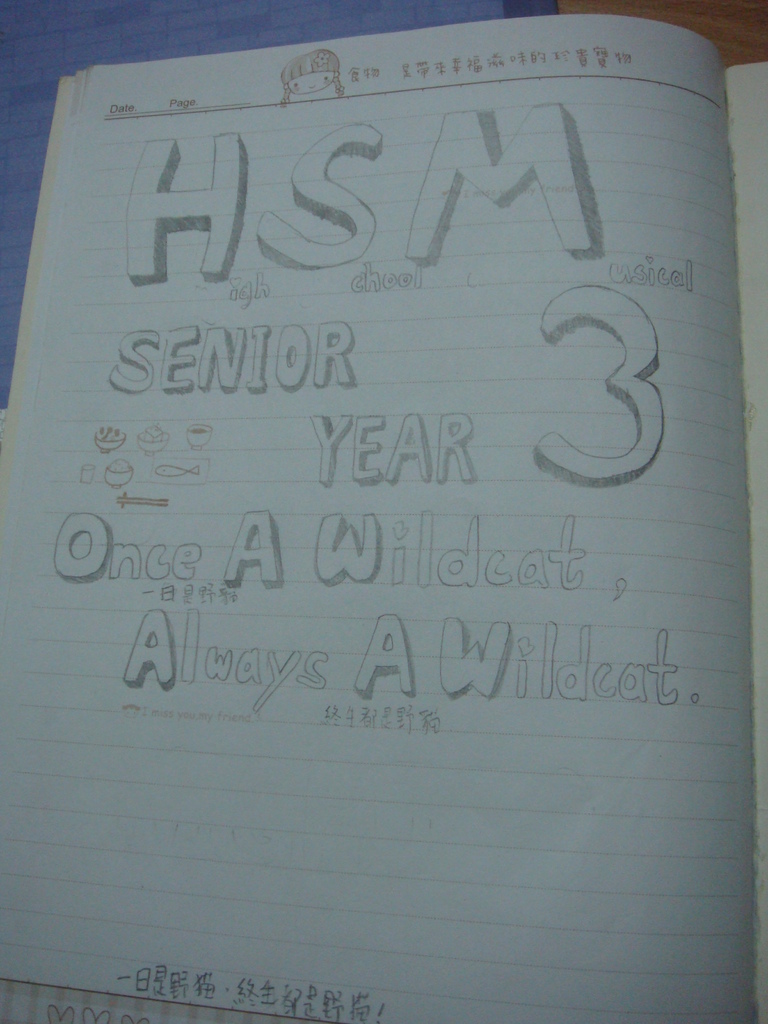 食物 是帶來幸福滋味的珍貴寶物
Date. Page.
HSM
I miss you my friend
igh chool usical
SENIOR 3
YEAR
Once A Wildcat,
一日是野貓
Always A Wildcat.
I miss you.my friend.
終生都是野貓
一日是野貓．終生都是野貓!